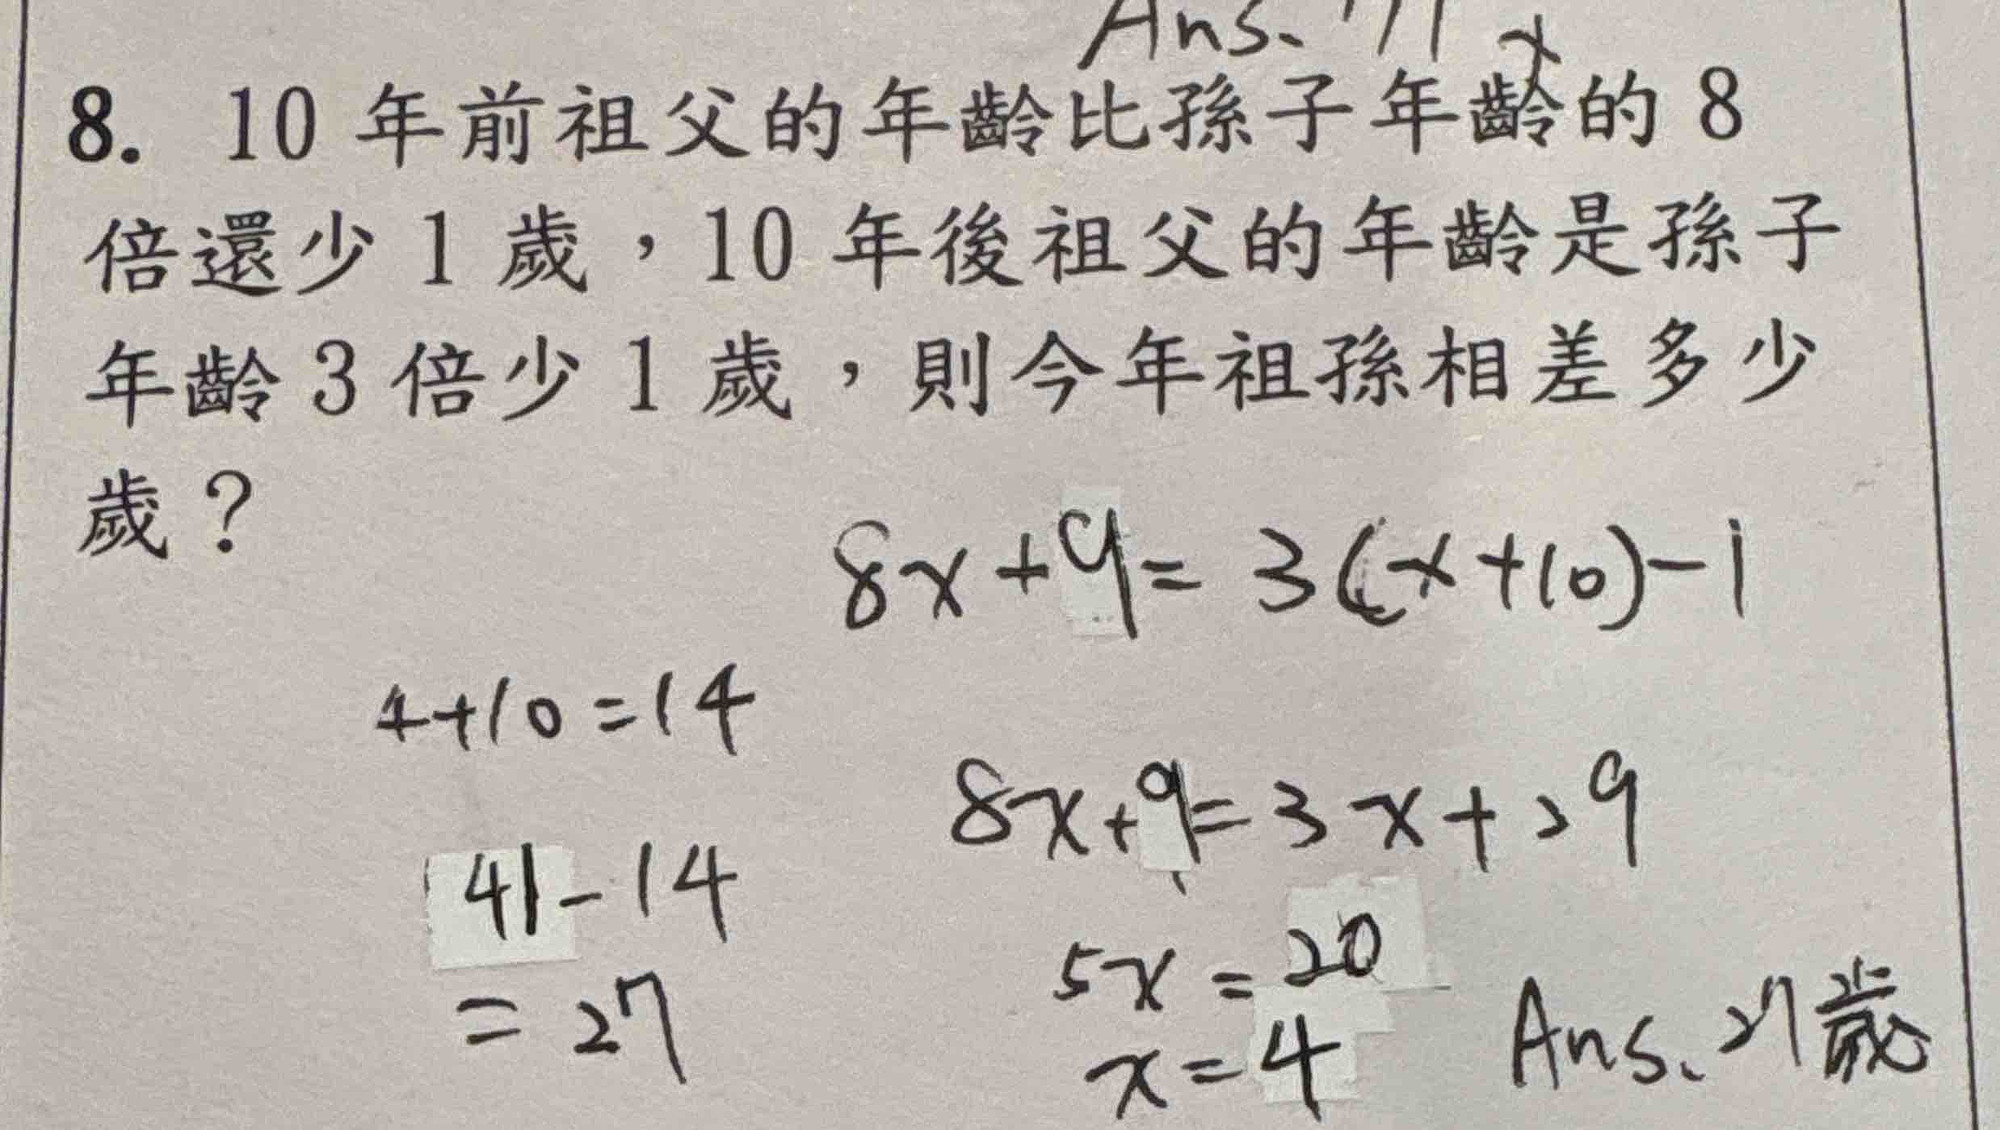 Ans. 71
8. 10 年前祖父的年齡比孫子年齡的 8
倍還少 1 歲，10 年後祖父的年齡是孫子
年齡 3 倍少 1 歲，則今年祖孫相差多少
歲？
8x+9=3(x+10)-1
4+10=14
8x+9=3x+29
41-14
=27
5x=20
x=4
Ans. 27歲